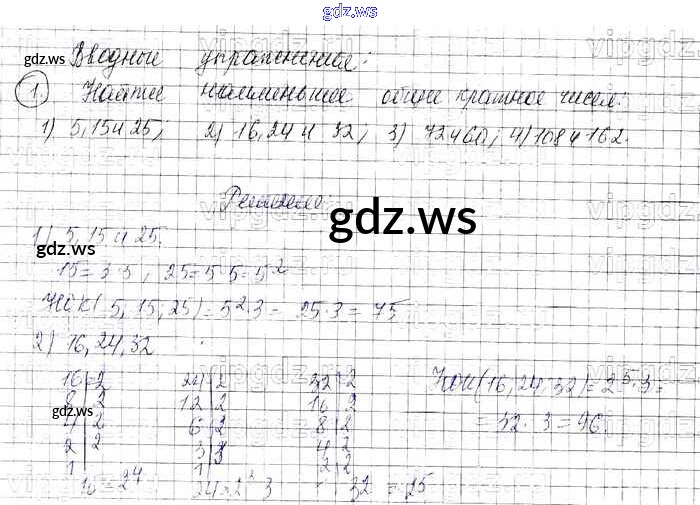 gdz.ws
Вводные упражнения:
1. Найти наименьшее общее кратное чисел:
1) 5, 15 и 25; 2) 16, 24 и 32; 3) 72 и 60; 4) 108 и 162.
Решение:
gdz.ws
1) 5, 15 и 25.
15 = 3·5, 25 = 5·5 = 5²
НОК(5, 15, 25) = 5²·3 = 25·3 = 75
2) 16, 24, 32
16 2 24 2 32 2 НОК(16, 24, 32) = 2⁵·3 =
8 2 12 2 16 2
4 2 6 2 8 2 = 32·3 = 96.
2 2 3 3 4 2
1 1 2 2
16 = 2⁴ 32 = 25
gdz.ws
gdz.ws
gdz.ws
gdz.ws
gdz.ws